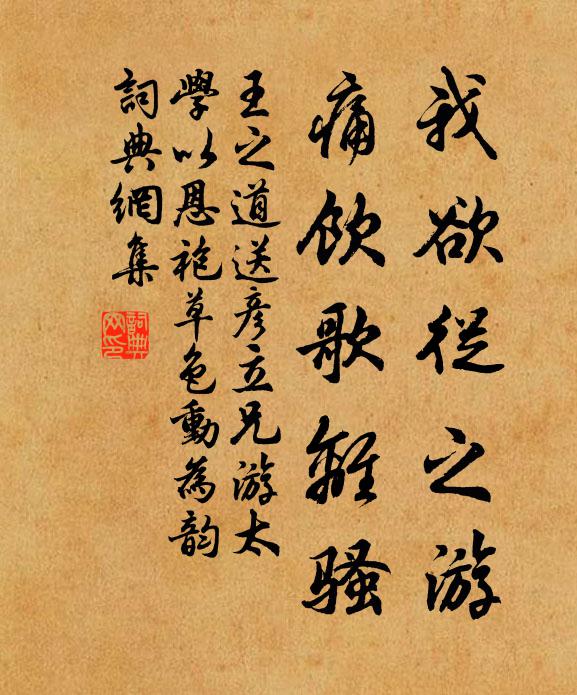 我欲從之游
痛飲歌離騷
王之道送彥立兄游太
學以恩袍草色動為韵
詞典網集
詞典網印